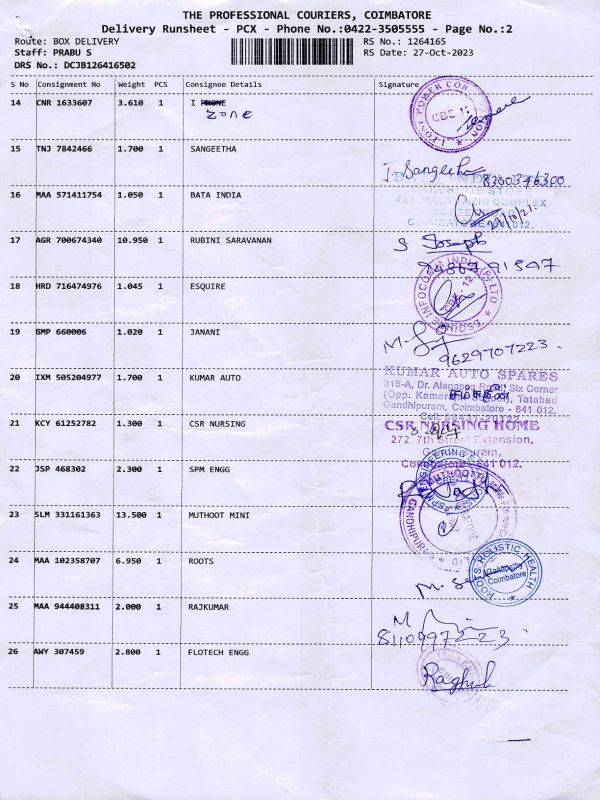 THE PROFESSIONAL COURIERS, COIMBATORE
Delivery Runsheet - PCX - Phone No.:0422-3505555 - Page No.:2
Route: BOX DELIVERY RS No.: 1264165
Staff: PRABU S RS Date: 27-Oct-2023
DRS No.: DCJB126416502
S No Consignment No Weight PCS Consignee Details Signature
14 CNR 1633607 3.610 1 I PHONE
zone
CBE 12
15 TNJ 7842466 1.700 1 SANGEETHA
J. Sangeetha 8300346300
16 MAA 571411754 1.050 1 BATA INDIA
STORE
COMPLEX
17 AGR 700674340 10.950 1 RUBINI SARAVANAN
S Joseph
18 HRD 716474976 1.045 1 ESQUIRE
INFOCOMM INDIA (P) LTD
19 GMP 660006 1.020 1 JANANI
9629707223.
20 IXM 505204977 1.700 1 KUMAR AUTO
KUMAR AUTO SPARES
316-A, Dr. Alagappa Road, Six Corner
Tatabad
Gandhipuram, Coimbatore - 641 012.
21 KCY 61252782 1.300 1 CSR NURSING
CSR NURSING HOME
272, 7th Street Extension,
Coimbatore - 641 012.
22 JSP 468302 2.300 1 SPM ENGG
23 SLM 331161363 13.500 1 MUTHOOT MINI
24 MAA 102358707 6.950 1 ROOTS
ROOTS HOLISTIC HEALTH
Ganapathy
Coimbatore
25 MAA 944408311 2.000 1 RAJKUMAR
8110997223
26 AWY 307459 2.800 1 FLOTECH ENGG
Raghul